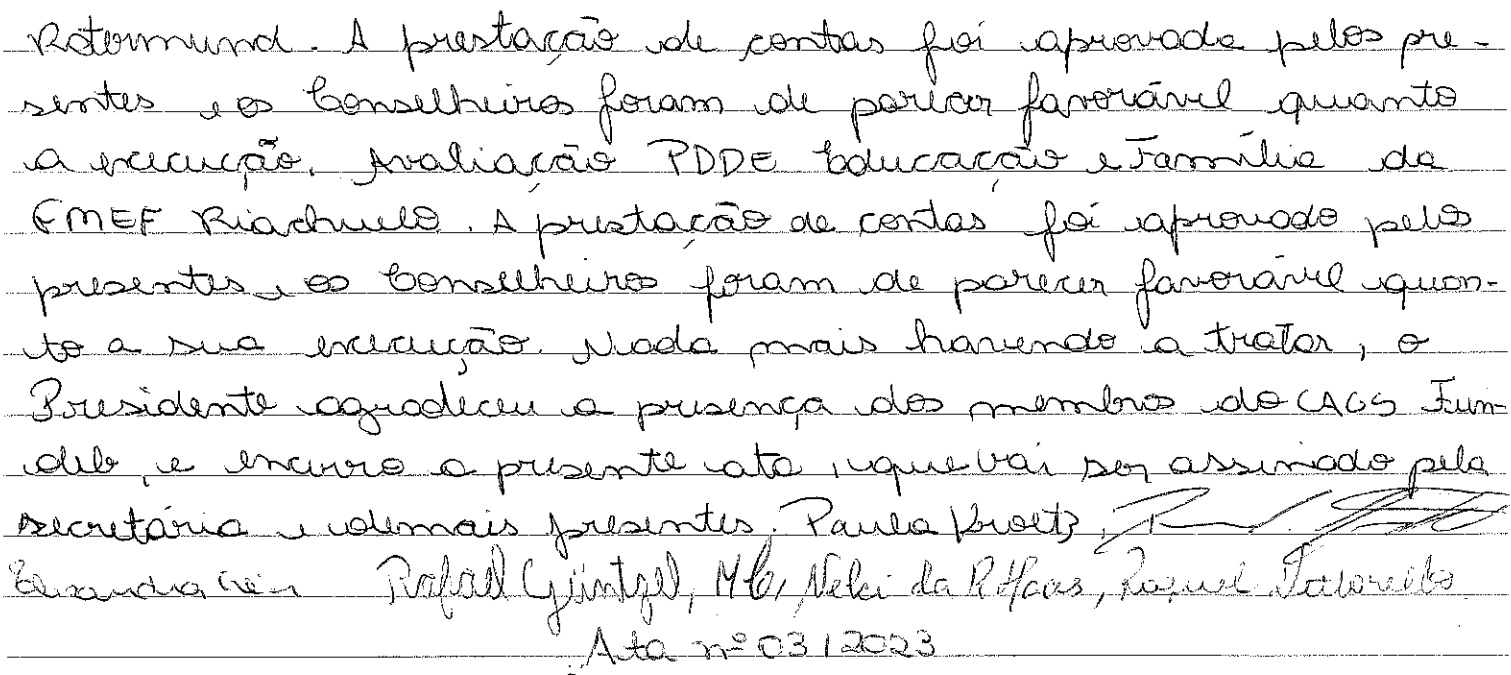 Rotermund. A prestação de contas foi aprovada pelos pre-
sentes e os Conselheiros foram de parecer favorável quanto
a execução. Avaliação PDDE Educação e Família da
EMEF Riachuelo. A prestação de contas foi aprovado pelos
presentes, e os Conselheiros foram de parecer favorável quan-
to a sua execução. Nada mais havendo a tratar, o
Presidente agradeceu a presença dos membros do CACS Fun
deb, e encerro a presente ata, que vai ser assinado pela
secretária e demais presentes. Paula Kroetz,
Rafael Güntzel, Nelci da R Haas, Raquel
Ata nº 03/2023